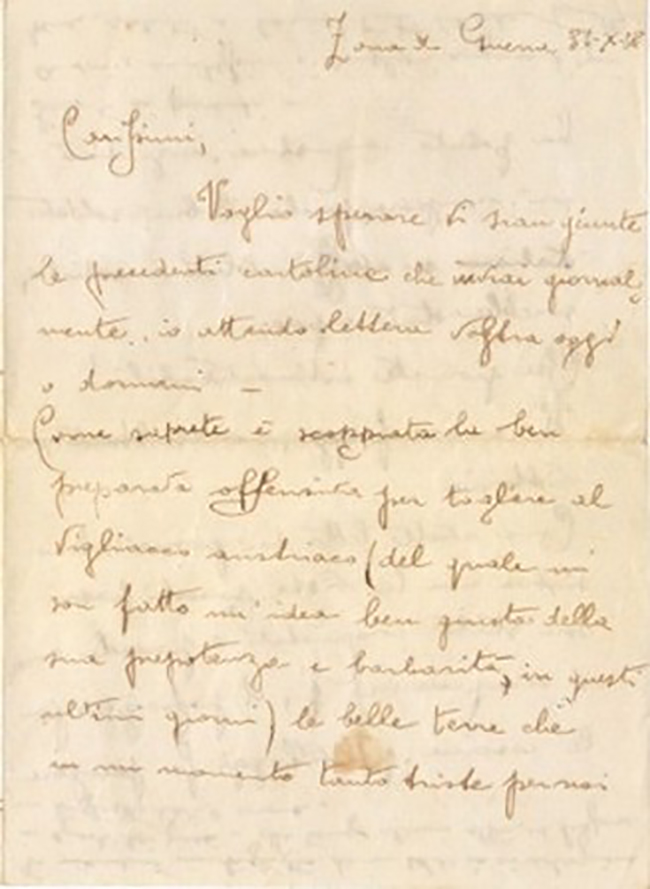 Zona di Guerra 31-X-18
Carissimi,
Voglio sperare vi sian giunte
le precedenti cartoline che inviai giornal=
mente, io attendo lettera vostra oggi
o domani —
Come saprete è scoppiata la ben
preparata offensiva per togliere al
vigliacco austriaco (del quale mi
son fatto un'idea ben giusta della
sua prepotenza e barbarità, in questi
ultimi giorni) le belle terre che
in un momento tanto triste per noi